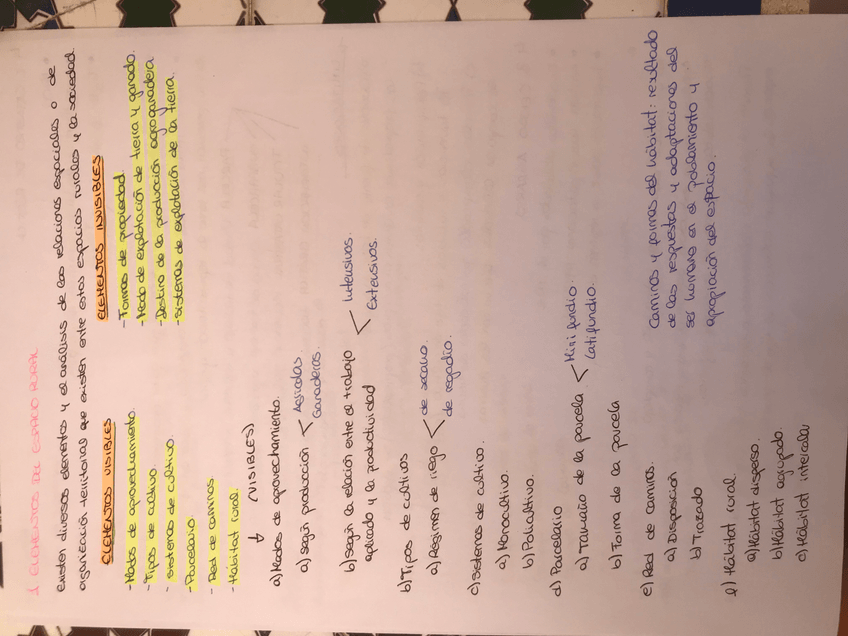 1 ELEMENTOS DEL ESPACIO RURAL
Existen diversos elementos y el análisis de las relaciones espaciales o de
organización territorial que existen entre estos espacios rurales y la sociedad.
ELEMENTOS VISIBLES
-Modos de aprovechamiento.
-Tipos de cultivo.
-Sistemas de cultivo.
-Parcelario.
-Red de caminos.
-Hábitat rural.
ELEMENTOS INVISIBLES
-Formas de propiedad.
-Modo de explotación de tierra y ganado.
-Destino de la producción agroganadera.
-Sistemas de explotación de la tierra.
↓ (VISIBLES)
a) Modos de aprovechamiento.
a) según producción < Agrícolas.
Ganaderos.
b) según la relación entre el trabajo
aplicado y la productividad < Intensivos.
Extensivos.
b) Tipos de cultivos
a) Régimen de riego < de secano.
de regadío.
c) Sistemas de cultivo.
a) Monocultivo.
b) Policultivo.
d) Parcelario
a) Tamaño de la parcela. < Minifundio.
Latifundio.
b) Forma de la parcela
e) Red de caminos.
a) Disposición
b) Trazado
f) Hábitat rural.
a) Hábitat disperso.
b) Hábitat agrupado.
c) Hábitat intercalar
Caminos y formas del hábitat: resultado
de las respuestas y adaptaciones del
ser humano en el poblamiento y
apropiación del espacio.